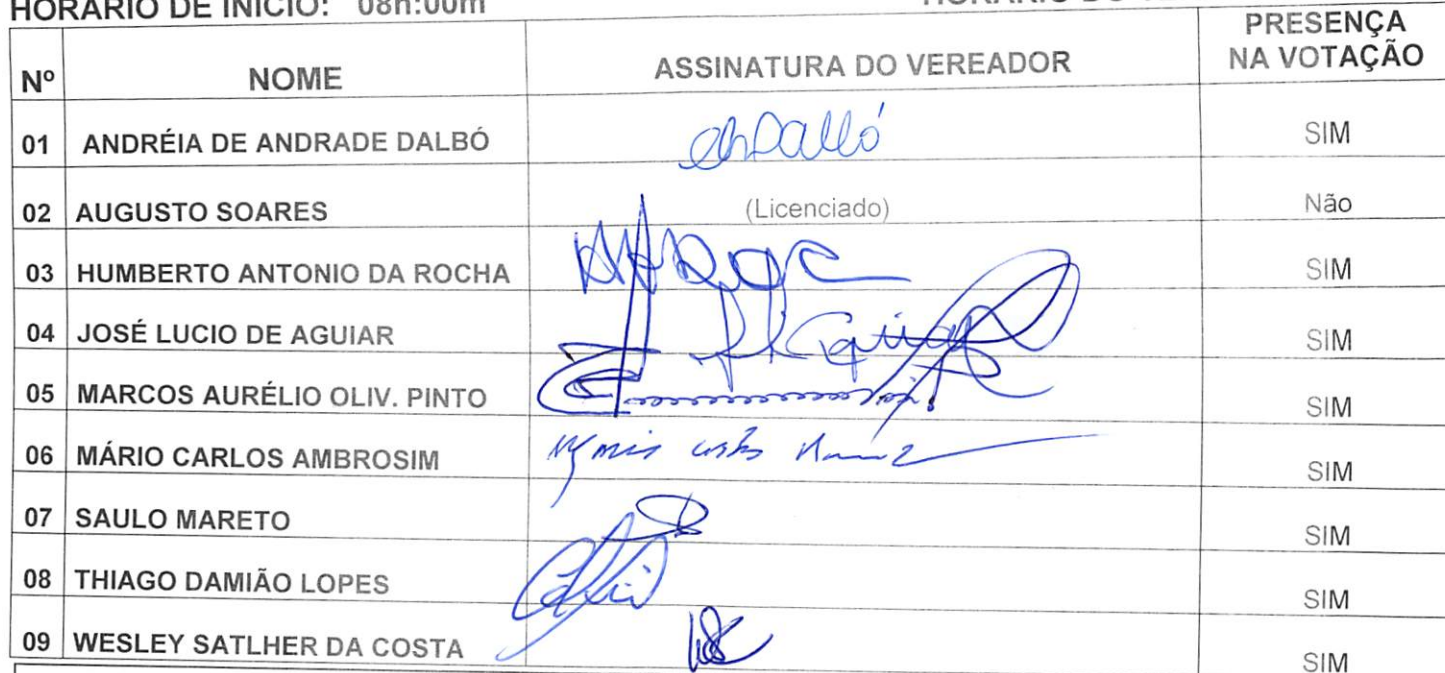 HORÁRIO DE INÍCIO: 08h:00m
Nº NOME ASSINATURA DO VEREADOR PRESENÇA NA VOTAÇÃO
01 ANDRÉIA DE ANDRADE DALBÓ SIM
02 AUGUSTO SOARES (Licenciado) Não
03 HUMBERTO ANTONIO DA ROCHA SIM
04 JOSÉ LUCIO DE AGUIAR SIM
05 MARCOS AURÉLIO OLIV. PINTO SIM
06 MÁRIO CARLOS AMBROSIM SIM
07 SAULO MARETO SIM
08 THIAGO DAMIÃO LOPES SIM
09 WESLEY SATLHER DA COSTA SIM